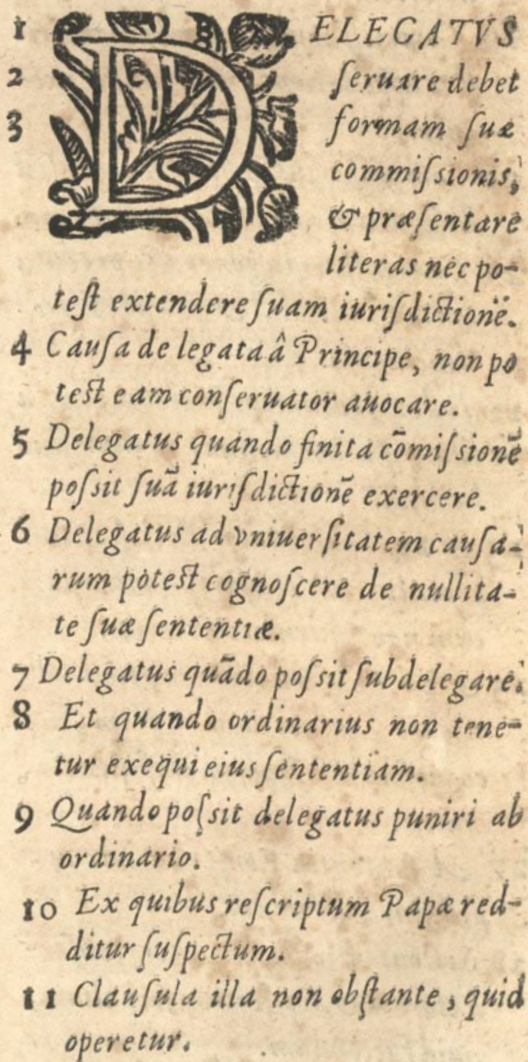 1 DELEGATVS
2 ſeruare debet
3 formam ſuæ
commiſsionis,
& præſentare
literas nec po-
teſt extendere ſuam iuriſdictionē.
4 Cauſa delegata â Principe, non po
teſt eam conſeruator auocare.
5 Delegatus quando finita cōmiſsionē
poſsit ſuā iuriſdictionē exercere.
6 Delegatus ad vniuerſitatem cauſa-
rum poteſt cognoſcere de nullita-
te ſuæ ſententiæ.
7 Delegatus quādo poſsit ſubdelegare.
8 Et quando ordinarius non tene-
tur exequi eius ſententiam.
9 Quando poſsit delegatus puniri ab
ordinario.
10 Ex quibus reſcriptum Papæ red-
ditur ſuſpectum.
11 Clauſula illa non obſtante, quid
operetur.